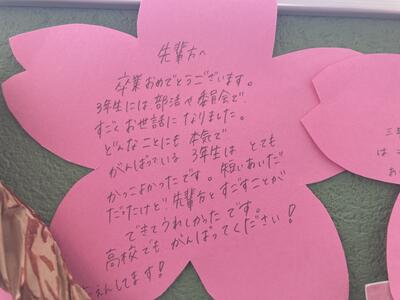 先輩方へ
卒業おめでとうございます。
3年生には、部活や委員会で、
すごくお世話になりました。
どんなことにも本気で
がんばっている3年生は、とても
かっこよかったです。短いあいだ
だったけど先輩方とすごすことが
できてうれしかったです。
高校でもがんばってください!
えんしてます!
三
は
お